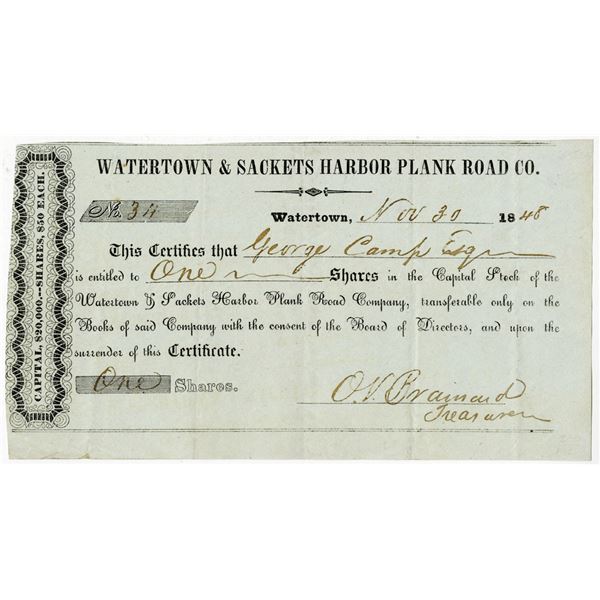 CAPITAL, $20,000.—SHARES, $50 EACH.
WATERTOWN & SACKETS HARBOR PLANK ROAD CO.
No. 34
Watertown, Nov 30 1848
This Certifies that George Camp Esqr
is entitled to One Shares in the Capital Stock of the
Watertown & Sackets Harbor Plank Road Company, transferable only on the
Books of said Company with the consent of the Board of Directors, and upon the
surrender of this Certificate.
One Shares.
O.V. Brainard
Treasurer